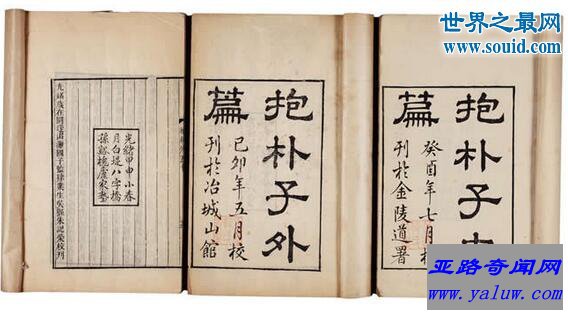 世界之最网
www.souid.com
抱朴子内
篇
癸酉年七月校
刊於金陵道署
抱朴子外
篇
己卯年五月校
刊於冶城山館
光緒甲申小春
月白堤八字橋
孫谿槐廬家塾
光緒歲在閼逢涒灘國子監肄業生吳縣朱記榮校刊
亚路奇闻网
www.yaluw.com